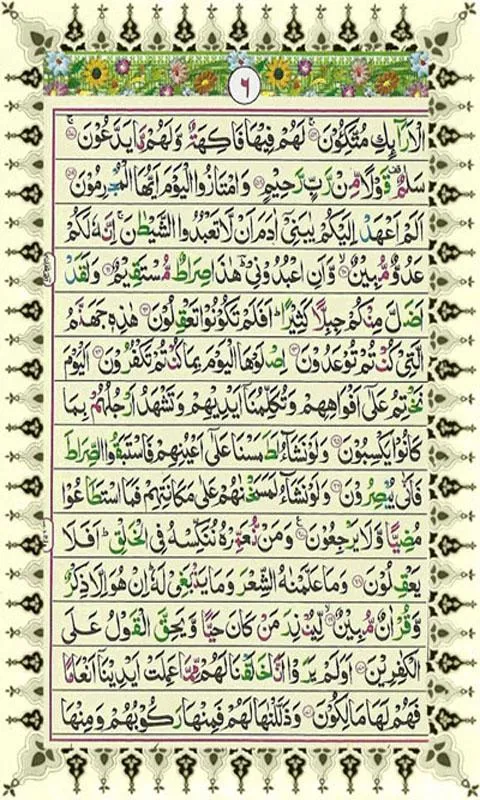 ٦
الْاَرَآئِكِ مُتَّكِـُٔوْنَ ۝ لَهُمْ فِيْهَا فَاكِهَةٌ وَّلَهُمْ مَّا يَدَّعُوْنَ ۝
سَلٰمٌ قَوْلًا مِّنْ رَّبٍّ رَّحِيْمٍ ۝ وَامْتَازُوا الْيَوْمَ اَيُّهَا الْمُجْرِمُوْنَ ۝
اَلَمْ اَعْهَدْ اِلَيْكُمْ يٰبَنِيْۤ اٰدَمَ اَنْ لَّا تَعْبُدُوا الشَّيْطٰنَ ۚ اِنَّهٗ لَكُمْ
عَدُوٌّ مُّبِيْنٌ ۝ وَّاَنِ اعْبُدُوْنِيْ ؕ هٰذَا صِرَاطٌ مُّسْتَقِيْمٌ ۝ وَلَقَدْ
اَضَلَّ مِنْكُمْ جِبِلًّا كَثِيْرًا ؕ اَفَلَمْ تَكُوْنُوْا تَعْقِلُوْنَ ۝ هٰذِهٖ جَهَنَّمُ
الَّتِيْ كُنْتُمْ تُوْعَدُوْنَ ۝ اِصْلَوْهَا الْيَوْمَ بِمَا كُنْتُمْ تَكْفُرُوْنَ ۝ اَلْيَوْمَ
نَخْتِمُ عَلٰۤى اَفْوَاهِهِمْ وَتُكَلِّمُنَاۤ اَيْدِيْهِمْ وَتَشْهَدُ اَرْجُلُهُمْ بِمَا
كَانُوْا يَكْسِبُوْنَ ۝ وَلَوْ نَشَآءُ لَطَمَسْنَا عَلٰۤى اَعْيُنِهِمْ فَاسْتَبَقُوا الصِّرَاطَ
فَاَنّٰى يُبْصِرُوْنَ ۝ وَلَوْ نَشَآءُ لَمَسَخْنٰهُمْ عَلٰى مَكَانَتِهِمْ فَمَا اسْتَطَاعُوْا
مُضِيًّا وَّلَا يَرْجِعُوْنَ ۝ وَمَنْ نُّعَمِّرْهُ نُنَكِّسْهُ فِي الْخَلْقِ ؕ اَفَلَا
يَعْقِلُوْنَ ۝ وَمَا عَلَّمْنٰهُ الشِّعْرَ وَمَا يَنْۢبَغِيْ لَهٗ ؕ اِنْ هُوَ اِلَّا ذِكْرٌ
وَّقُرْاٰنٌ مُّبِيْنٌ ۝ لِّيُنْذِرَ مَنْ كَانَ حَيًّا وَّيَحِقَّ الْقَوْلُ عَلَى
الْكٰفِرِيْنَ ۝ اَوَلَمْ يَرَوْا اَنَّا خَلَقْنَا لَهُمْ مِّمَّا عَمِلَتْ اَيْدِيْنَاۤ اَنْعَامًا
فَهُمْ لَهَا مَالِكُوْنَ ۝ وَذَلَّلْنٰهَا لَهُمْ فَمِنْهَا رَكُوْبُهُمْ وَمِنْهَا